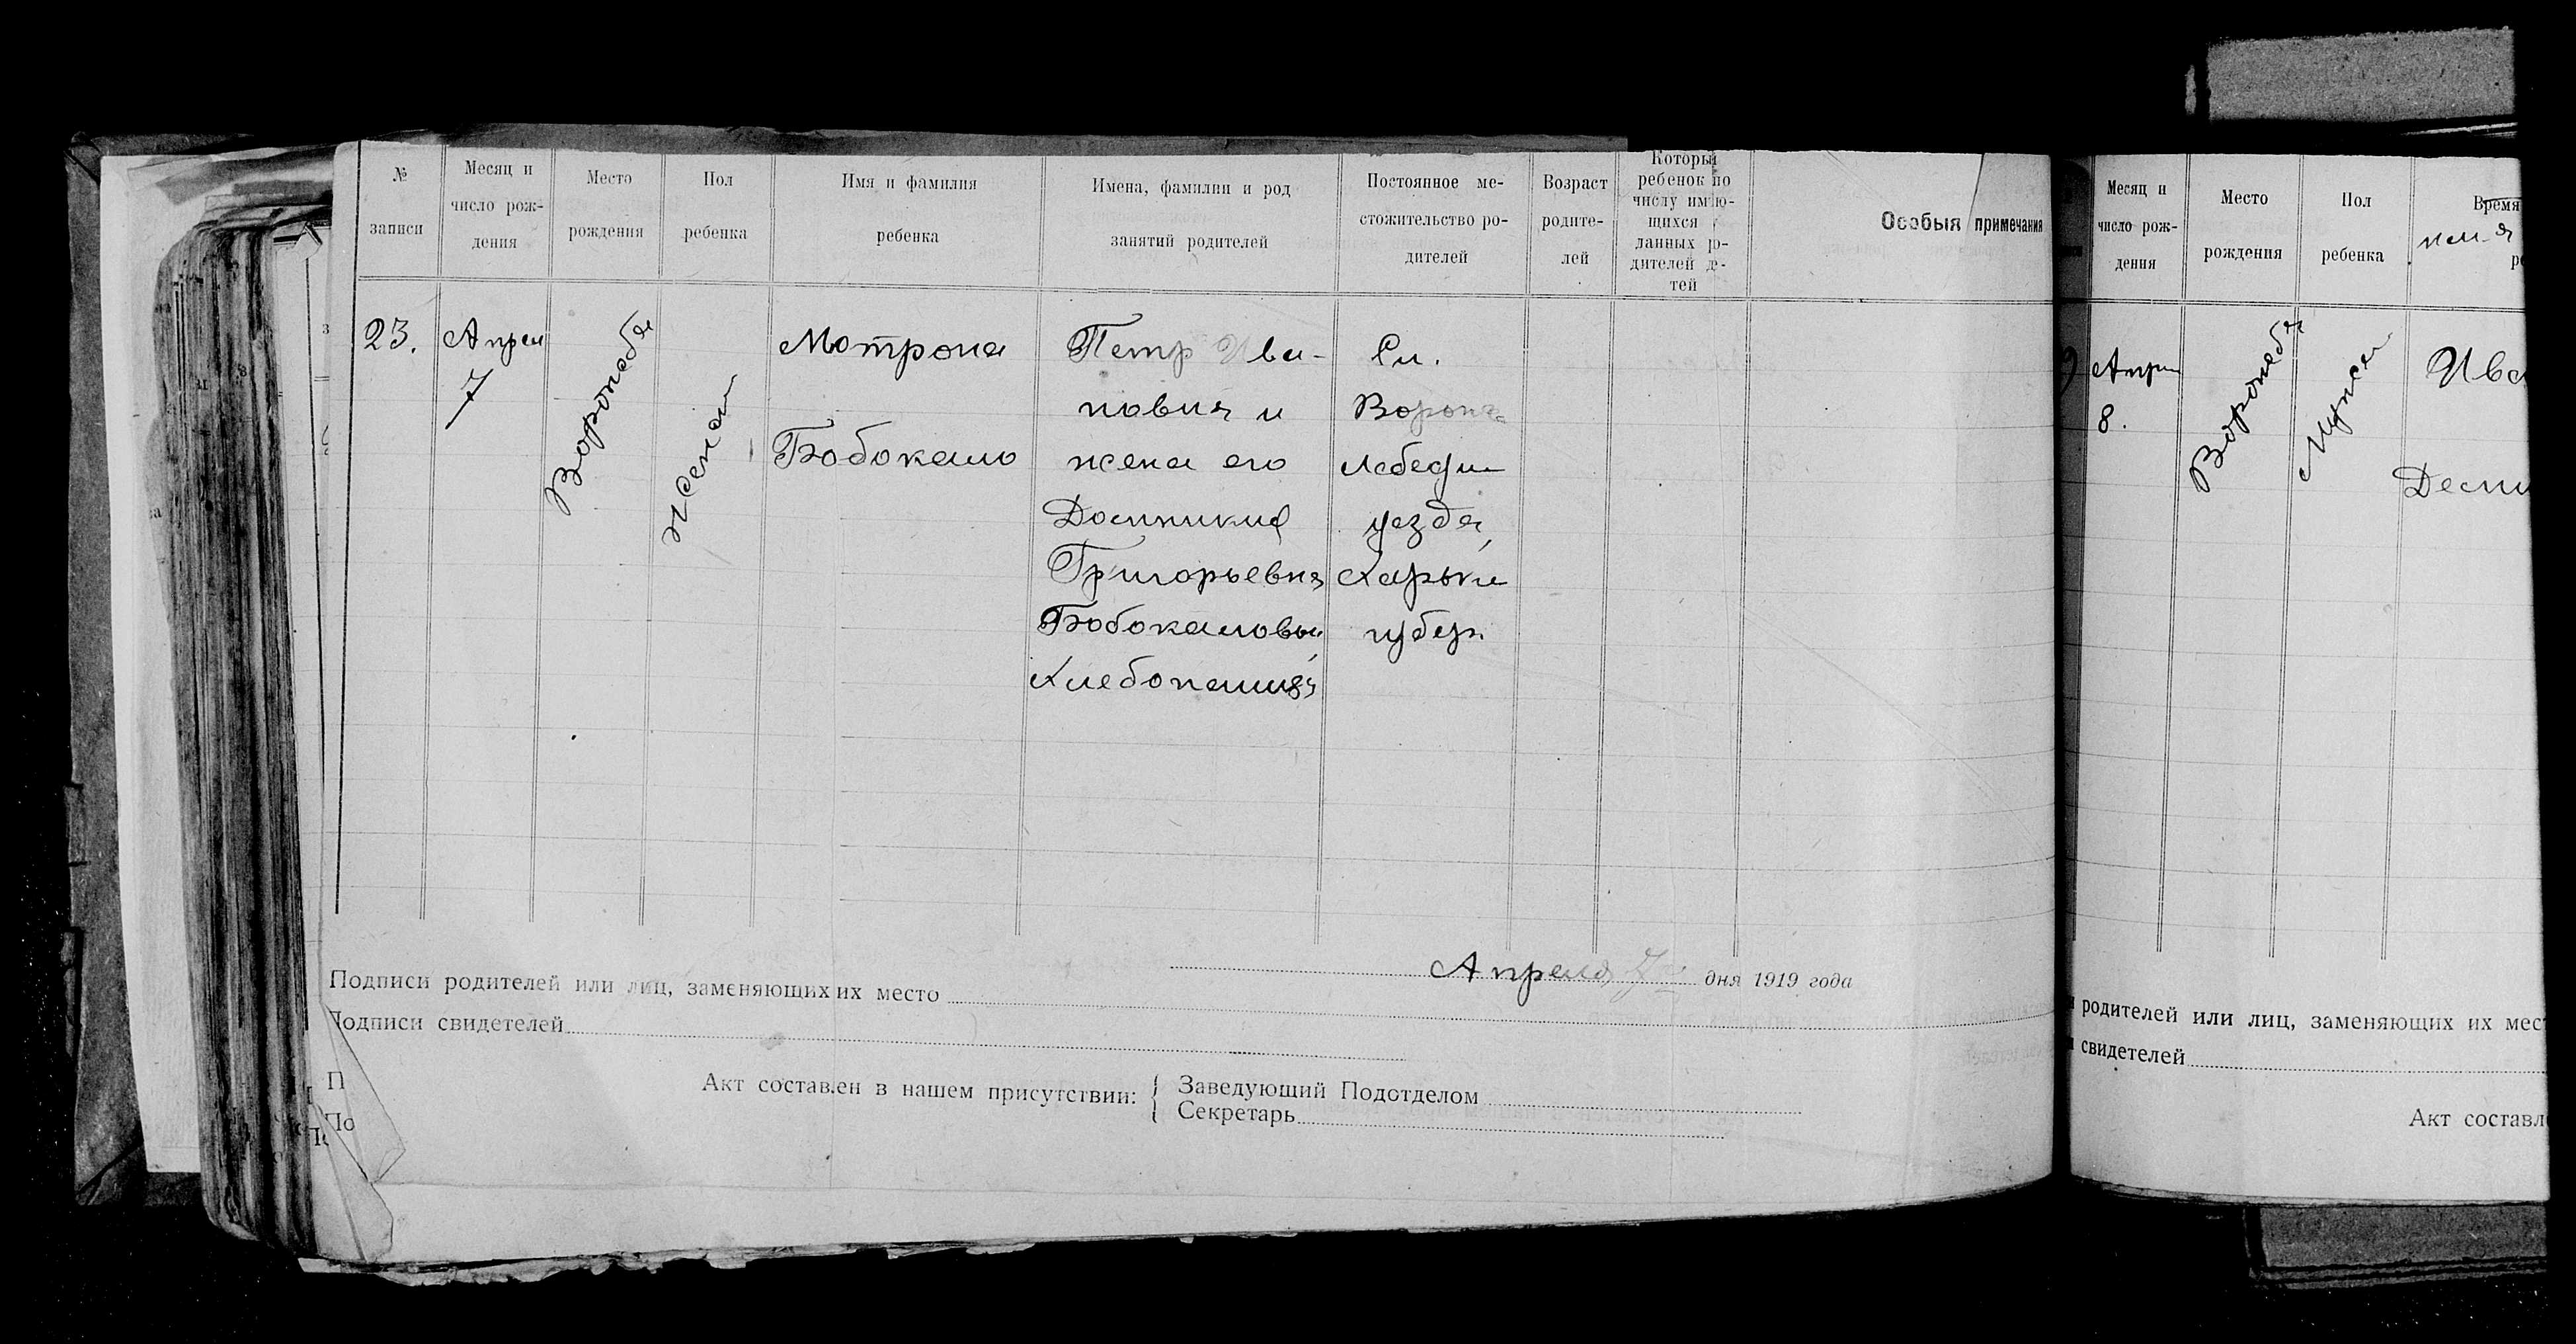 № записи
Месяц и число рождения
Место рождения
Пол ребенка
Имя и фамилия ребенка
Имена, фамилии и род занятий родителей
Постоянное местожительство родителей
Возраст родителей
Который ребенок по числу имеющихся данных родителей детей
Особыя примечания
23.
Апрел
7
Воронеба
женск
Мотрона
Бобокало
Петр Ива-
новия и
жена его
Домникия
Григорьевна
Бобокаловы
Хлебопашця
Сл.
Лебедин
уезда,
Харьк
губер.
Апреля 7 дня 1919 года
Подписи родителей или лиц, заменяющих их место
Подписи свидетелей
Акт составлен в нашем присутствии:
Заведующий Подотделом
Секретарь
Месяц и число рождения
Место рождения
Пол ребенка
Время
Апр
8.
Воронеба
Мужск
Ива
родителей или лиц, заменяющих их мес
свидетелей
Акт составл